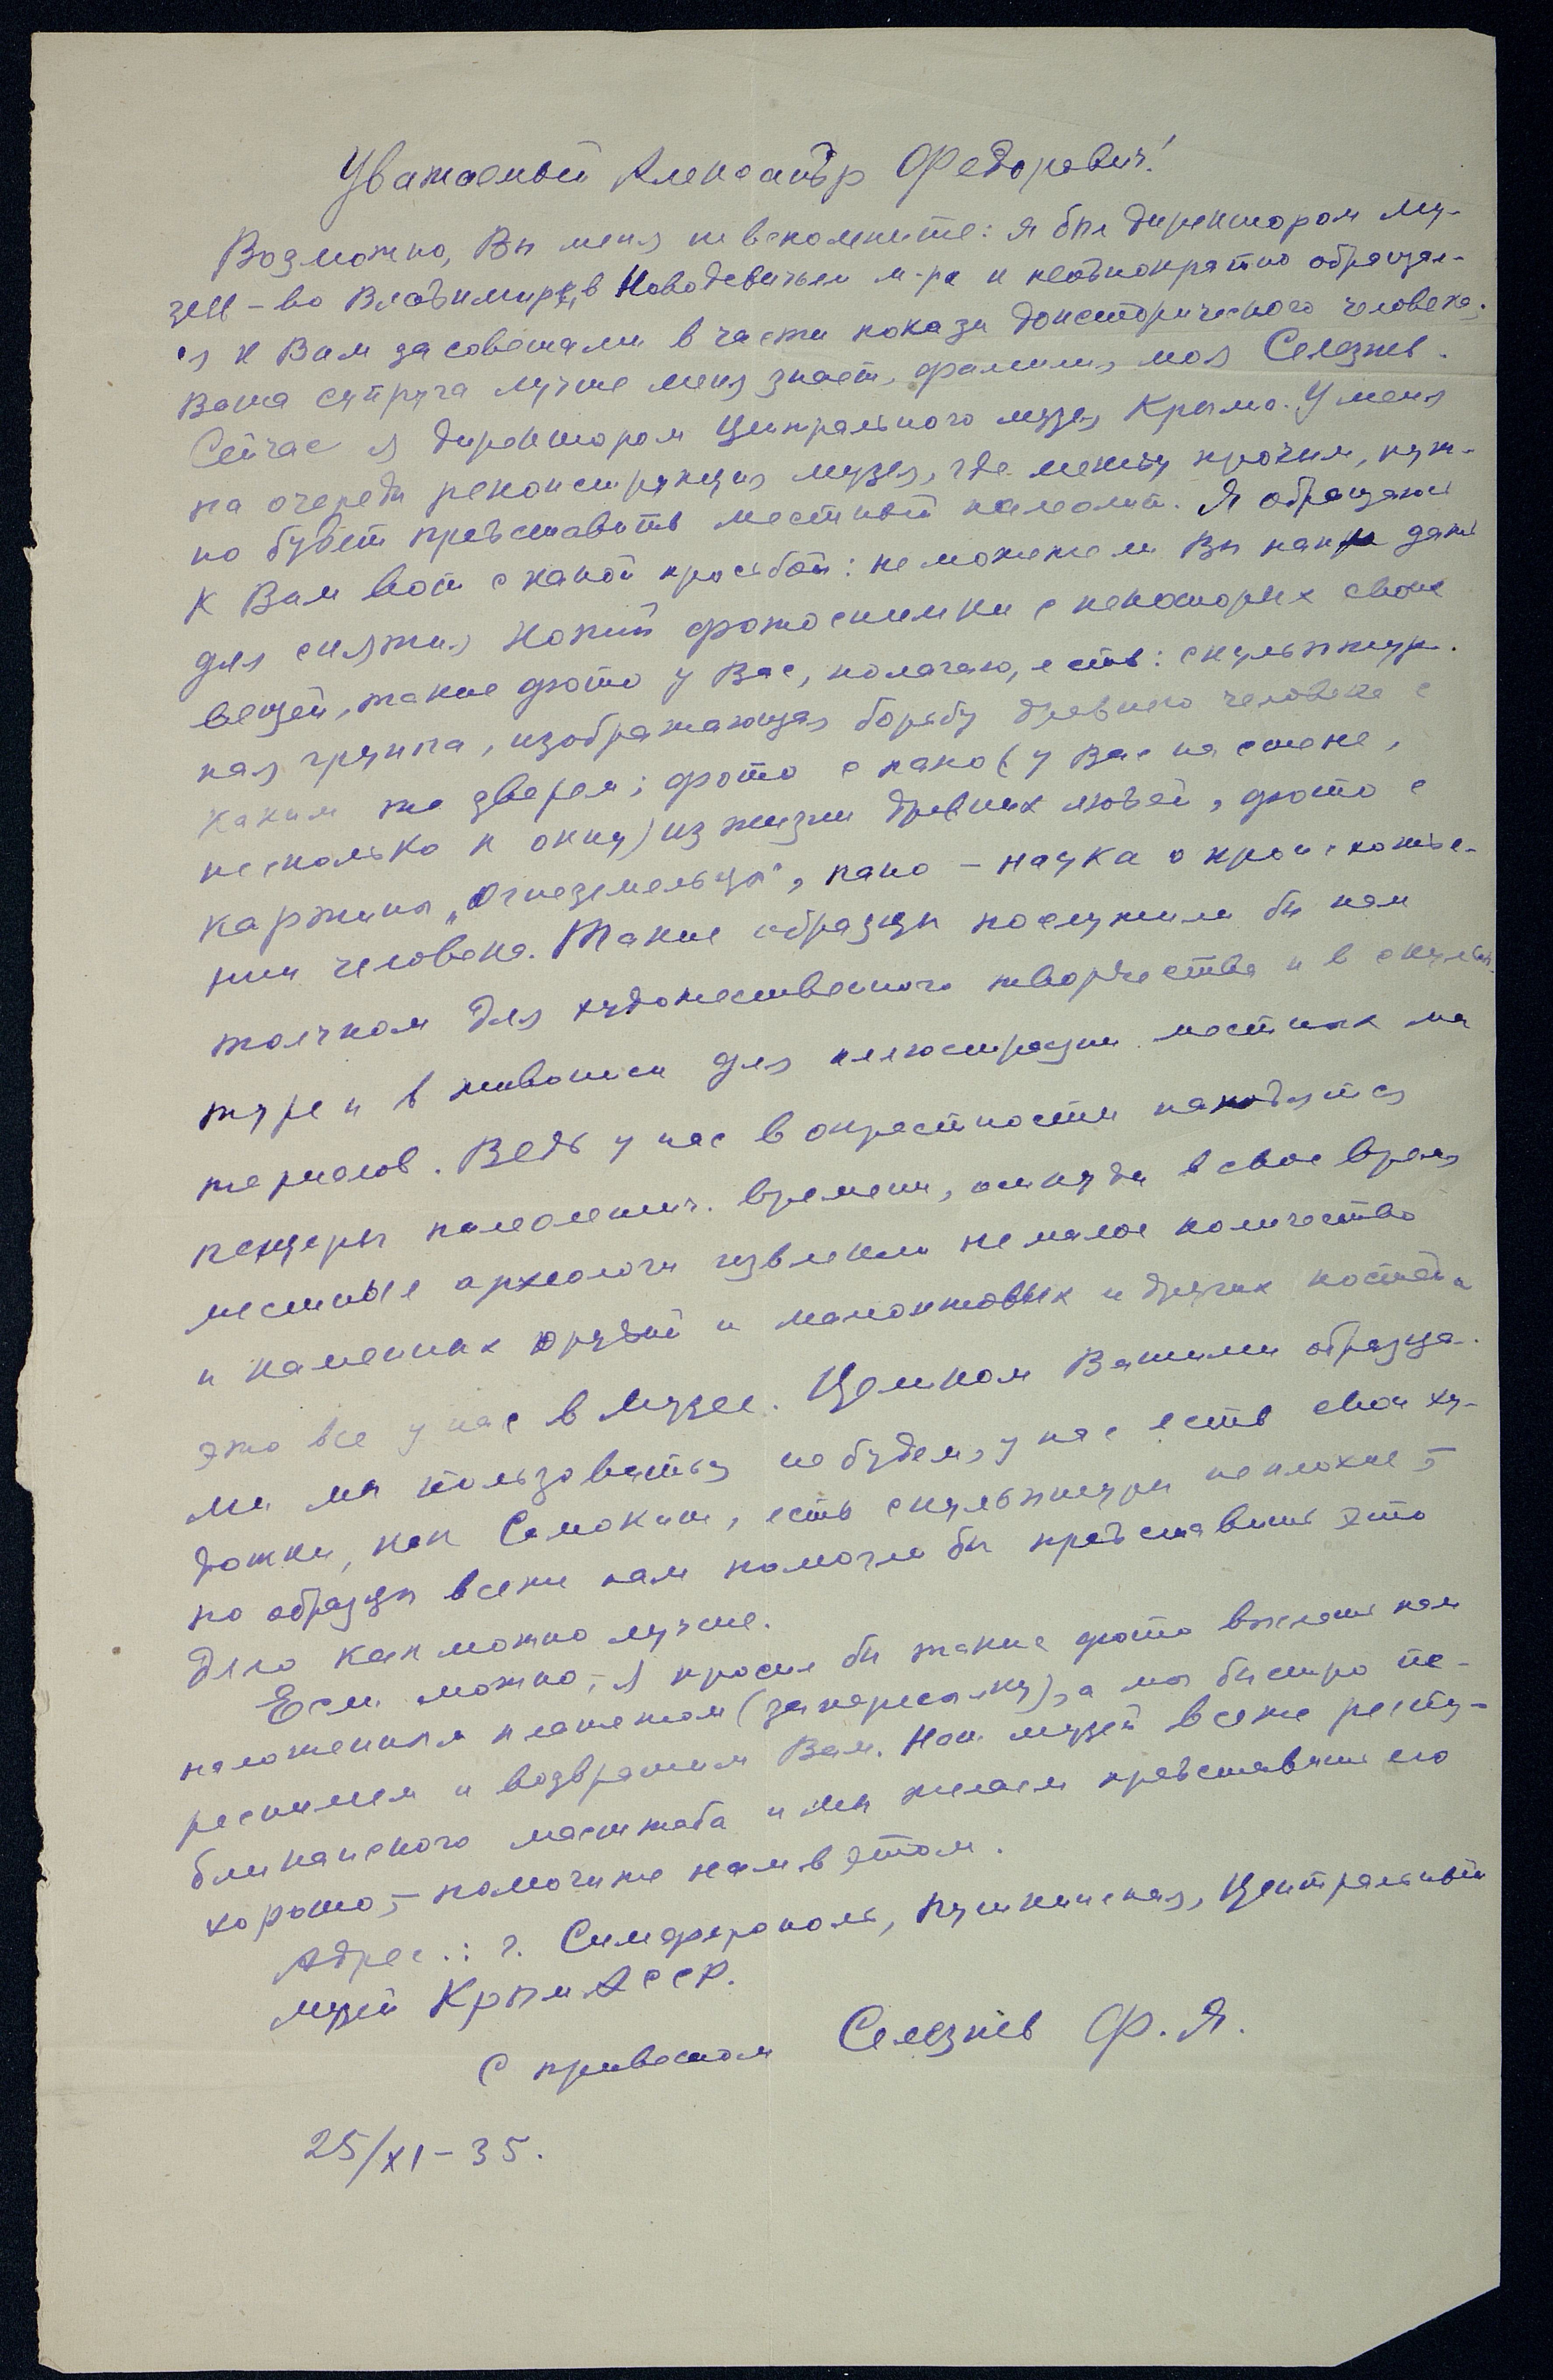 Уважаемый Александр Федорович!
Возможно, Вы меня и вспомните: я был директором му-
зея – во Владимире, в Новодевичьем м-ре и неоднократно обращал-
ся к Вам за советами в части показа доисторического человека;
Ваша супруга лучше меня знает, фамилия моя Селезнев.
Сейчас я директором Центрального музея Крыма. У меня
на очереди реконструкция музея, где между прочим, нуж-
но будет представить местный палеолит. Я обращаюсь
к Вам вот с какой просьбой: не можете ли Вы нам дать
для снятия копий фотоснимки с некоторых своих
вещей, такие фото у Вас, полагаю, есть: скульптур-
ная группа, изображающая борьбу древнего человека с
каким же зверем; фото с пано (у Вас на стене,
несколько к окну) из жизни древних людей, фото с
картины „Огнеземельцы", пано – наука о происхожде-
нии человека. Такие образцы послужили бы нам
толчком для художественного творчества и в скульп-
туре и в живописи для иллюстрации местных ма
териалов. Ведь у нас в окрестности находятся
пещеры палеолитич. времени, откуда в свое время
местные археологи извлекли не малое количество
и каменных орудий и мамонтовых и других костей и
это все у нас в музее. Целиком Вашими образца-
ми мы пользоваться не будем, у нас есть свои ху-
дожки, как Самокиш, есть скульпторы не плохие –
но образцы все же нам помогли бы представить это
дело как можно лучше.
Если можно, – я просил бы такие фото выслать нам
наложенным платежом (за пересылку), а мы быстро пе-
реснимем и возвратим Вам. Наш музей все же респу-
бликанского масштаба и мы желаем представить его
хорошо, – помогите нам в этом.
Адрес.: г. Симферополь, Пушкинская, Центральный
музей Крым АССР.
С приветом Селезнев Ф. Я.
25/XI – 35.